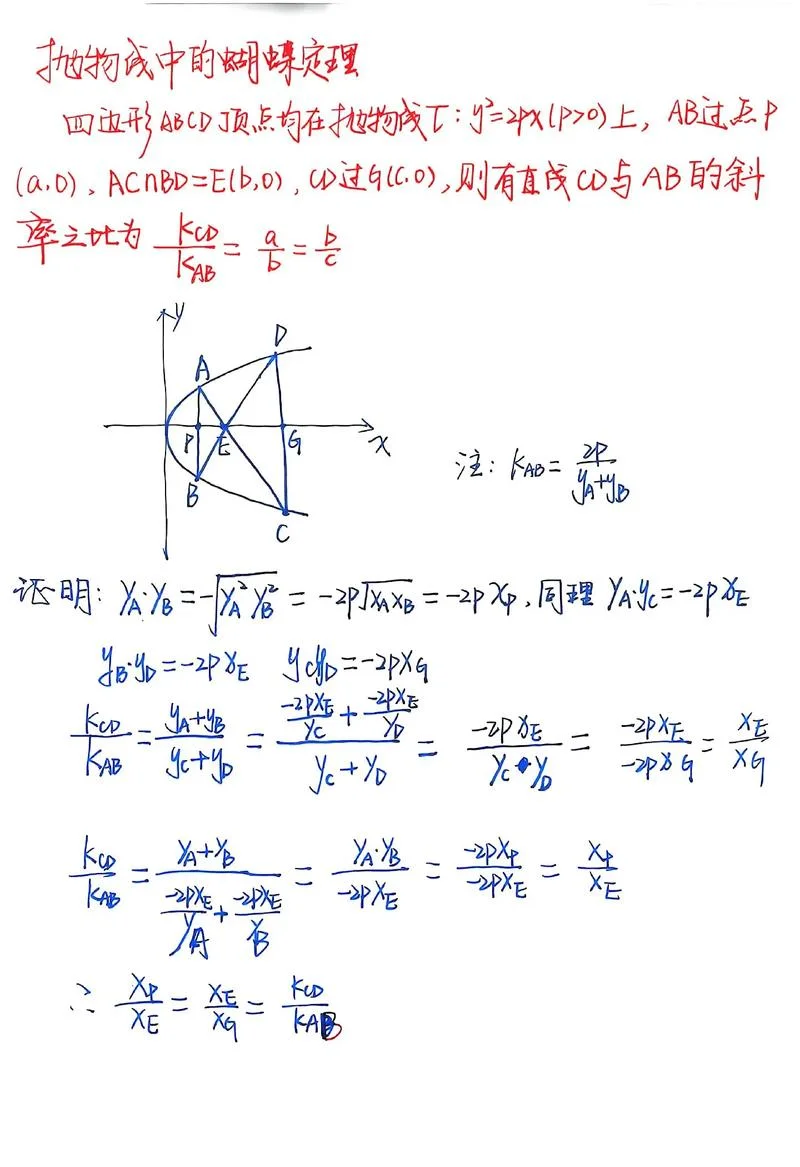 抛物线中的蝴蝶定理
四边形ABCD顶点均在抛物线T:y²=2px(p>0)上，AB过点P
(a,0)，AC∩BD=E(b,0)，CD过G(c,0)，则有直线CD与AB的斜
率之比为 k_CD/k_AB = a/b = b/c
y
D
A
P E G x
B
C
注：k_AB = 2p/(y_A+y_B)
证明：y_A·y_B = -√(y_A² y_B²) = -2p√(x_A x_B) = -2p x_P，同理 y_A·y_C = -2p x_E
y_B·y_D = -2p x_E y_C y_D = -2p x_G
k_CD/k_AB = (y_A+y_B)/(y_C+y_D) = (-2px_E/y_C + -2px_E/y_D)/(y_C+y_D) = -2px_E/(y_C·y_D) = -2px_E/-2px_G = x_E/x_G
k_CD/k_AB = (y_A+y_B)/(-2px_E/y_A + -2px_E/y_B) = y_A·y_B/-2px_E = -2px_P/-2px_E = x_P/x_E
∴ x_P/x_E = x_E/x_G = k_CD/k_AB